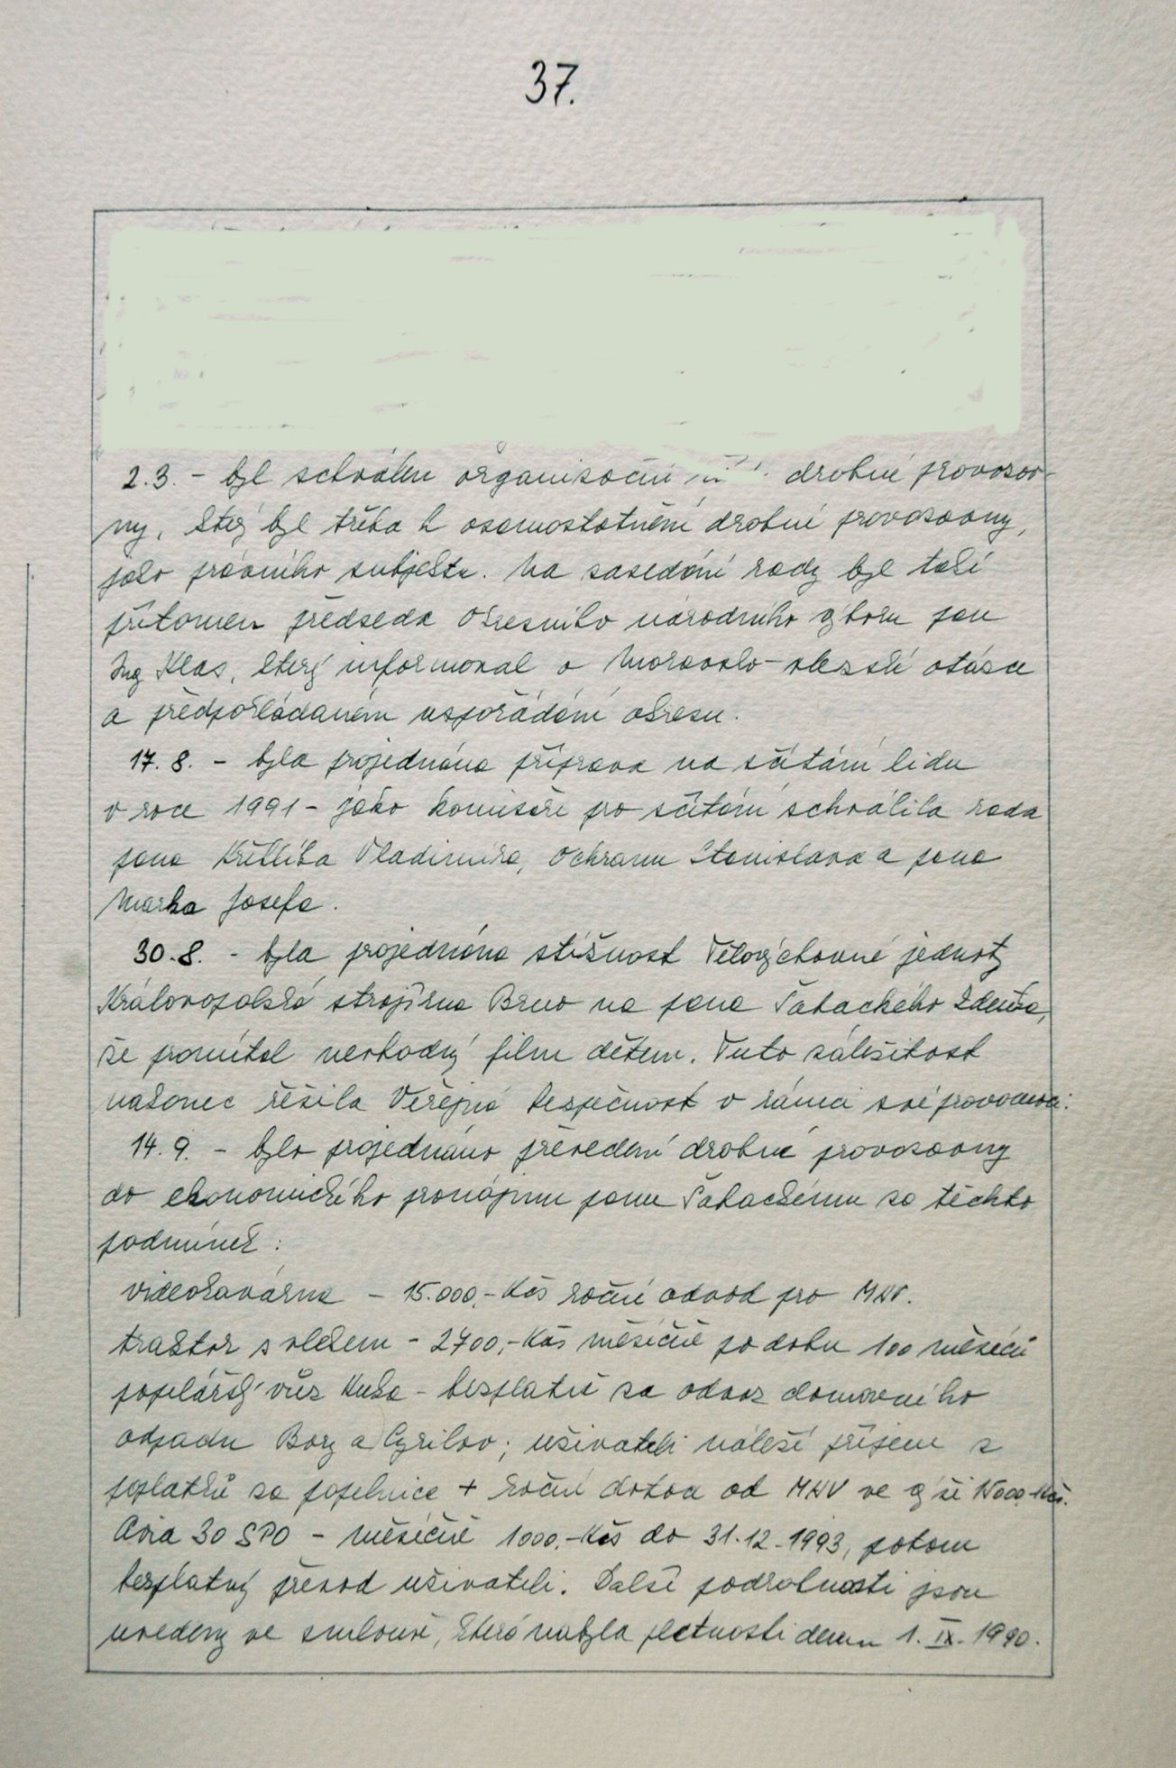 37.
2.3. - byl schválen organisační drobné provozov-
ny, který byl třeba k osamostatnění drobné provozovny,
jako právního subjektu. Na zasedání rady byl také
přítomen předseda okresního národního výboru pan
Ing Klas, který informoval o Moravsko-slezské otázce
a předpokládaném uspořádání okresu.
17. 8. - byla projednána příprava na sčítání lidu
v roce 1991 - jako komisaře pro sčítání schválila rada
pana Vladimíra, Ochranu Stanislava a pana
Marka Josefa.
30. 8. - byla projednána stížnost Tělovýchovné jednoty
Královopolská strojírna Brno na pana Šabackého Zdeňka,
že promítal nevhodný film dětem. Tuto záležitost
nakonec řešila Veřejná bezpečnost v rámci své pravomoci.
14. 9. - bylo projednáno převedení drobné provozovny
do ekonomického pronájmu panu Šabackému za těchto
podmínek:
videokavárna - 15.000,- Kčs roční odvod pro MNV.
traktor s vlekem - 2700,- Kčs měsíčně po dobu 100 měsíců
popelářský vůz Kuka - bezplatně za odvoz domovního
odpadu Bory a Cyrilov; uživateli náleží příjem z
poplatků za popelnice + roční dotace od MNV ve výši 15000,-Kčs.
Avia 30 SPO - měsíčně 1000,-Kčs do 31.12.1993, potom
bezplatný převod uživateli. Další podrobnosti jsou
uvedeny ve smlouvě, která nabyla platnosti dnem 1. IX. 1990.